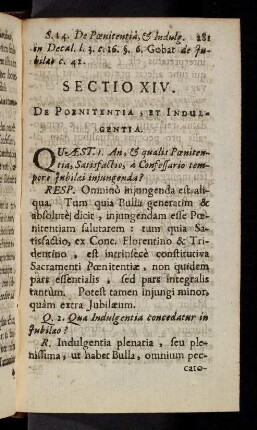 S. 14. De Pœnitentiâ, & Indulg. 281
in Decal. l. 3. c. 16. §. 6. Gobat de Ju-
bilæo c. 42.
SECTIO XIV.
DE POENITENTIA, ET INDUL-
GENTIA.
QUÆST. 1. An, & qualis Pœniten-
tia, Satisfactio, à Confessario tem-
pore Jubilæi injungenda?
RESP. Omninò injungenda est ali-
qua. Tum quia Bulla generatim &
absolutè dicit, injungendam esse Pœ-
nitentiam salutarem: tum quia Sa-
tisfactio, ex Conc. Florentino & Tri-
dentino, est intrinsecè constitutiva
Sacramenti Pœnitentiæ, non quidem
pars essentialis, sed pars integralis
tantùm. Potest tamen injungi minor,
quàm extra Jubilæum.
Q. 2. Qua Indulgentia concedatur in
Jubilæo?
R. Indulgentia plenaria, seu ple-
nissima, ut habet Bulla, omnium pec-
cato-